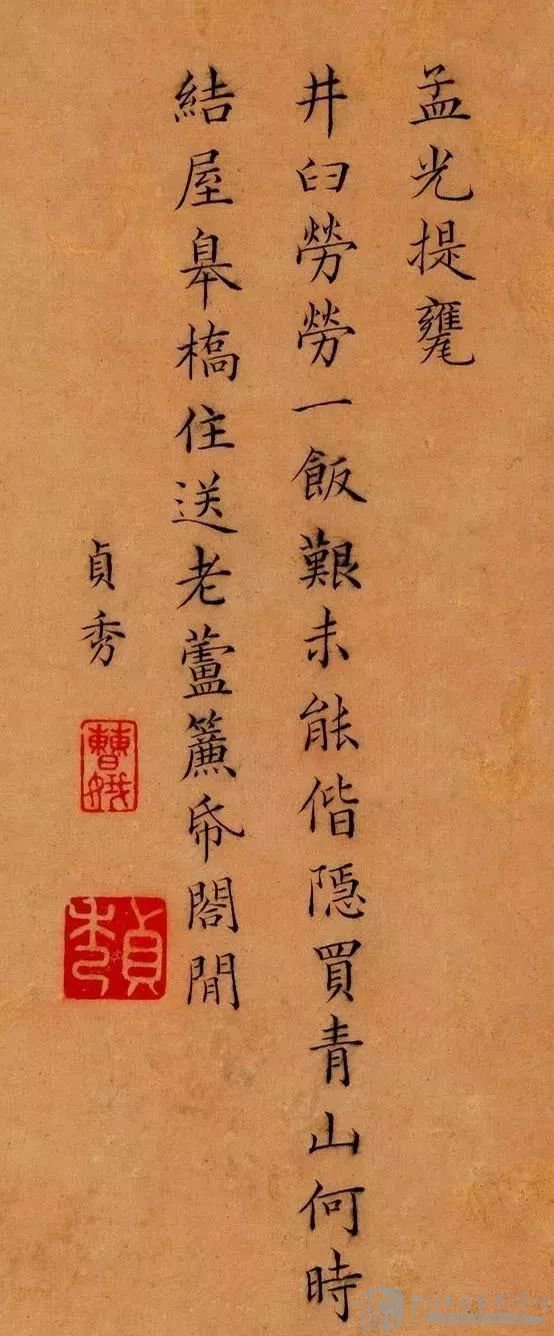 孟光提甕
井臼勞勞一飯艱未能偕隱買青山何時
結屋皋橋住送老蘆簾帋閤閒
貞秀
曹娥
貞秀